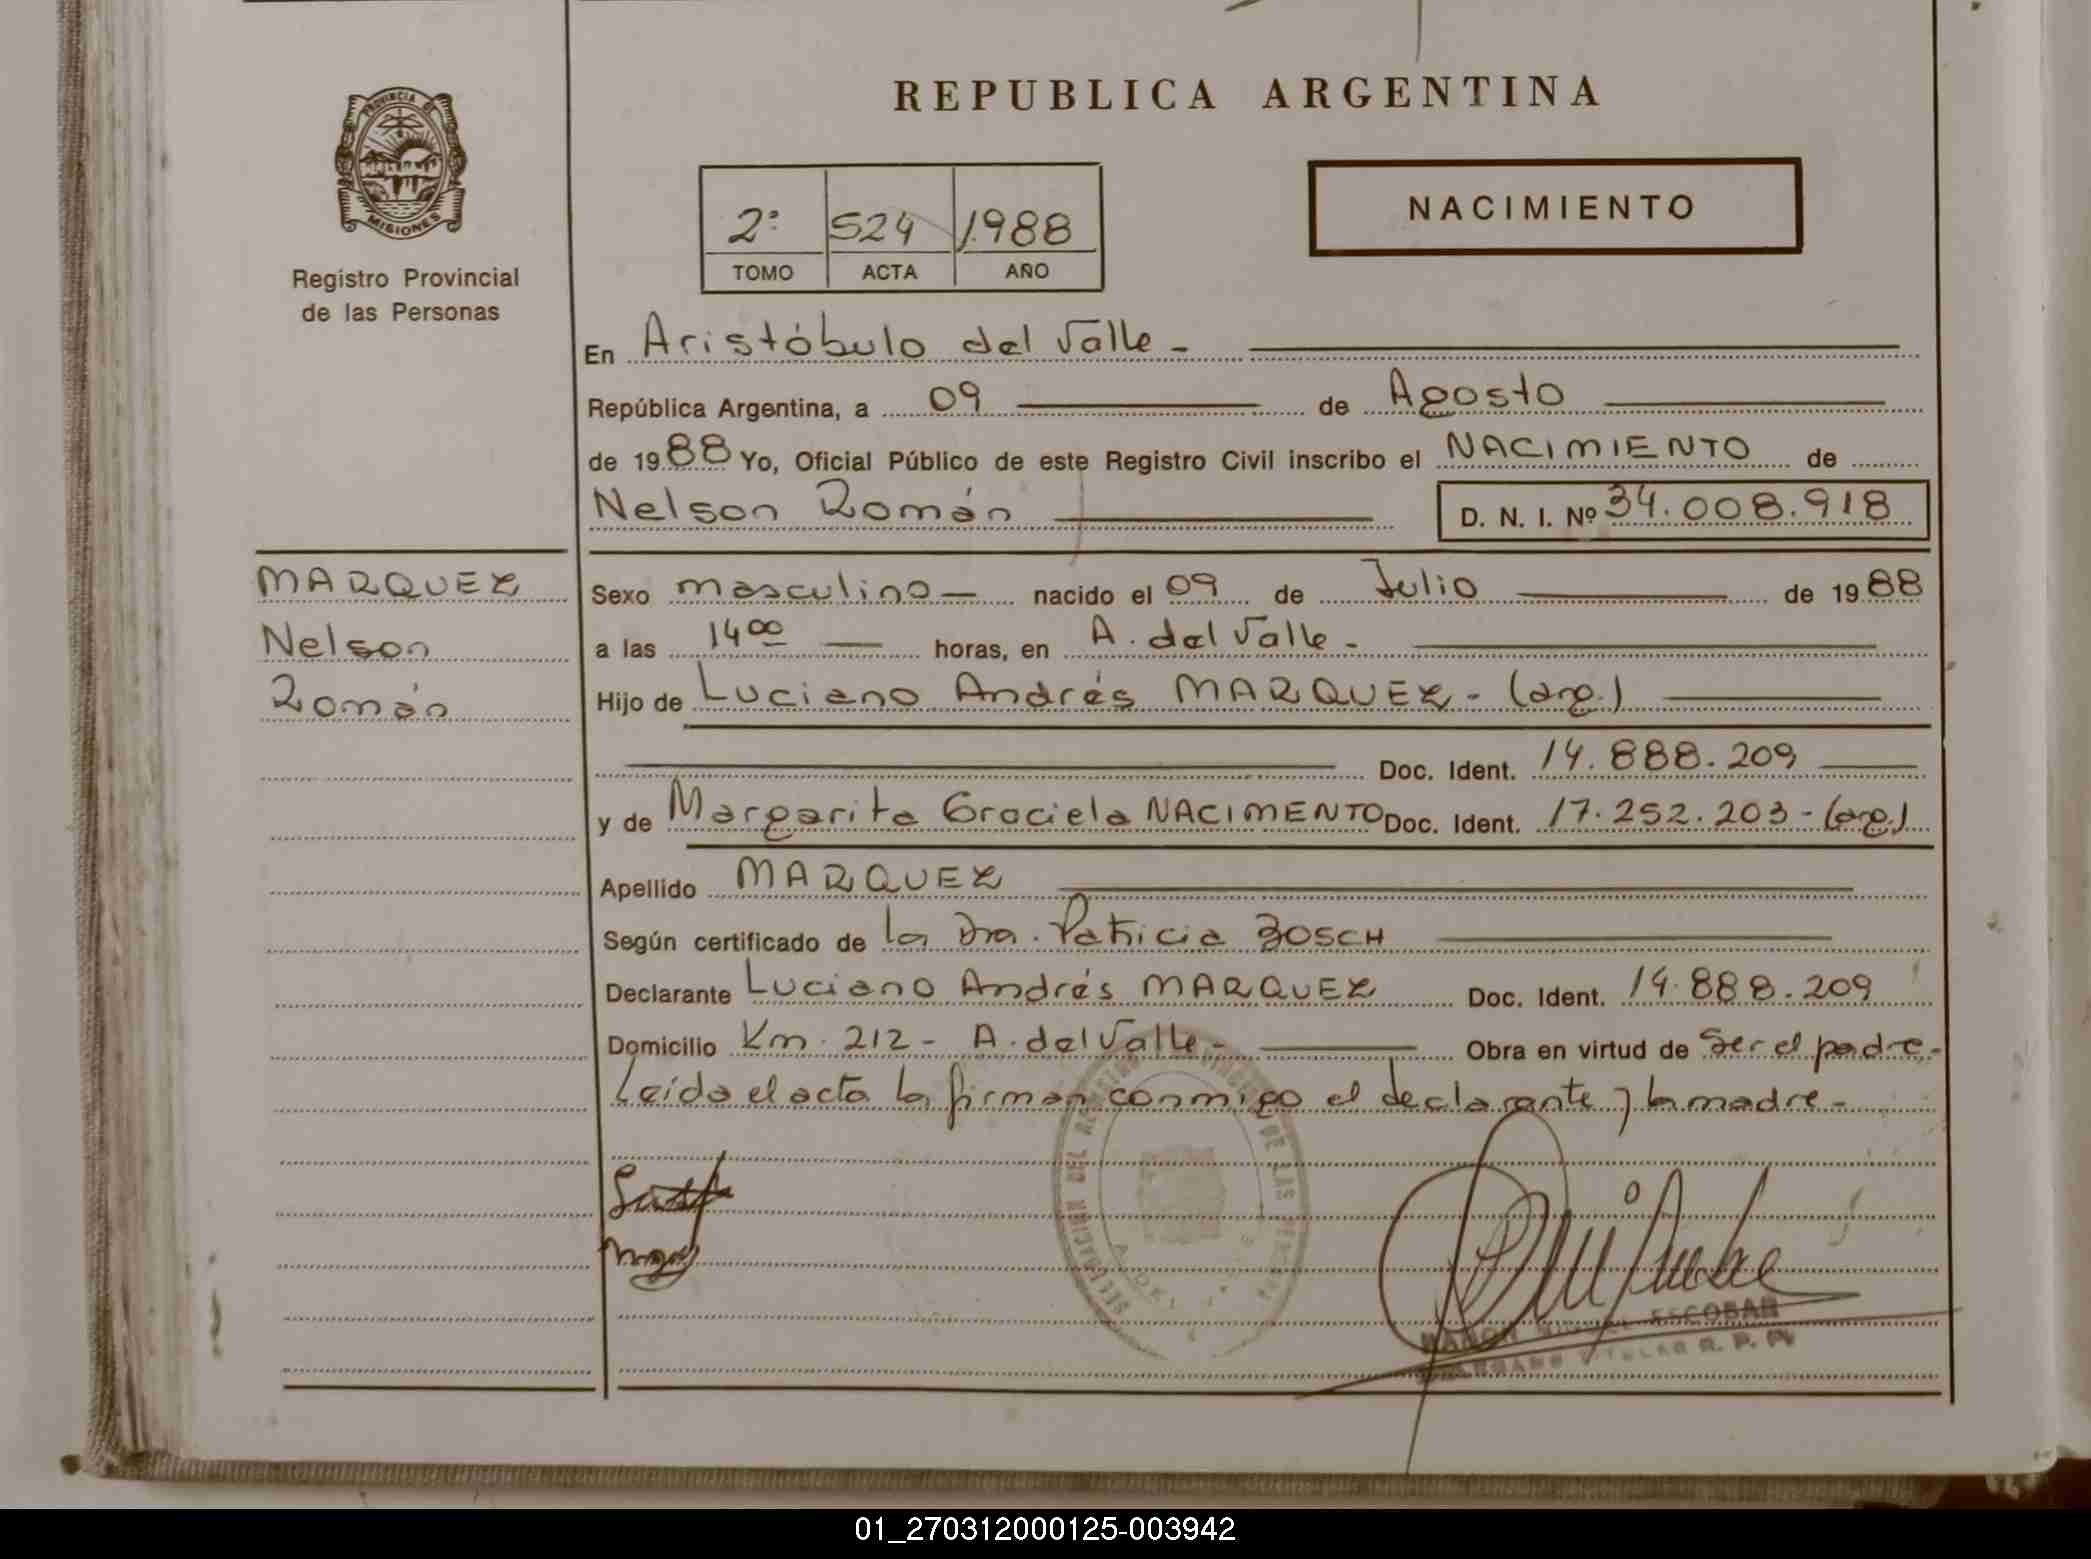 REPUBLICA ARGENTINA
PROVINCIA DE
MISIONES
Registro Provincial
de las Personas
2º 524 1988
TOMO ACTA AÑO
NACIMIENTO
En Aristóbulo del Valle -
República Argentina, a 09 de Agosto
de 1988 Yo, Oficial Público de este Registro Civil inscribo el NACIMIENTO de
Nelson Román D. N. I. Nº 34.008.918
MARQUEZ
Nelson
Román
Sexo masculino nacido el 09 de Julio de 1988
a las 14 00 horas, en A. del Valle -
Hijo de Luciano Andrés MARQUEZ - (arg.)
Doc. Ident. 14.888.209
y de Margarita Graciela NACIMENTO Doc. Ident. 17.252.203 - (arg.)
Apellido MARQUEZ
Según certificado de la Dra. Patricia BOSCH
Declarante Luciano Andrés MARQUEZ Doc. Ident. 14.888.209
Domicilio Km. 212 - A. del Valle - Obra en virtud de ser el padre -
Leída el acta la firman conmigo el declarante y la madre -
DEL REGISTRO PROVINCIAL DE LAS PERSONAS
RAMON ESCOBAR
TITULAR R. P. P.
01_270312000125-003942